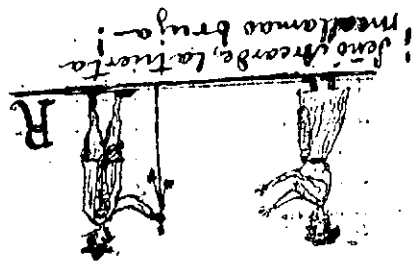 ¡Señó Arcarde, la tuerta
mellamao bruja!
R